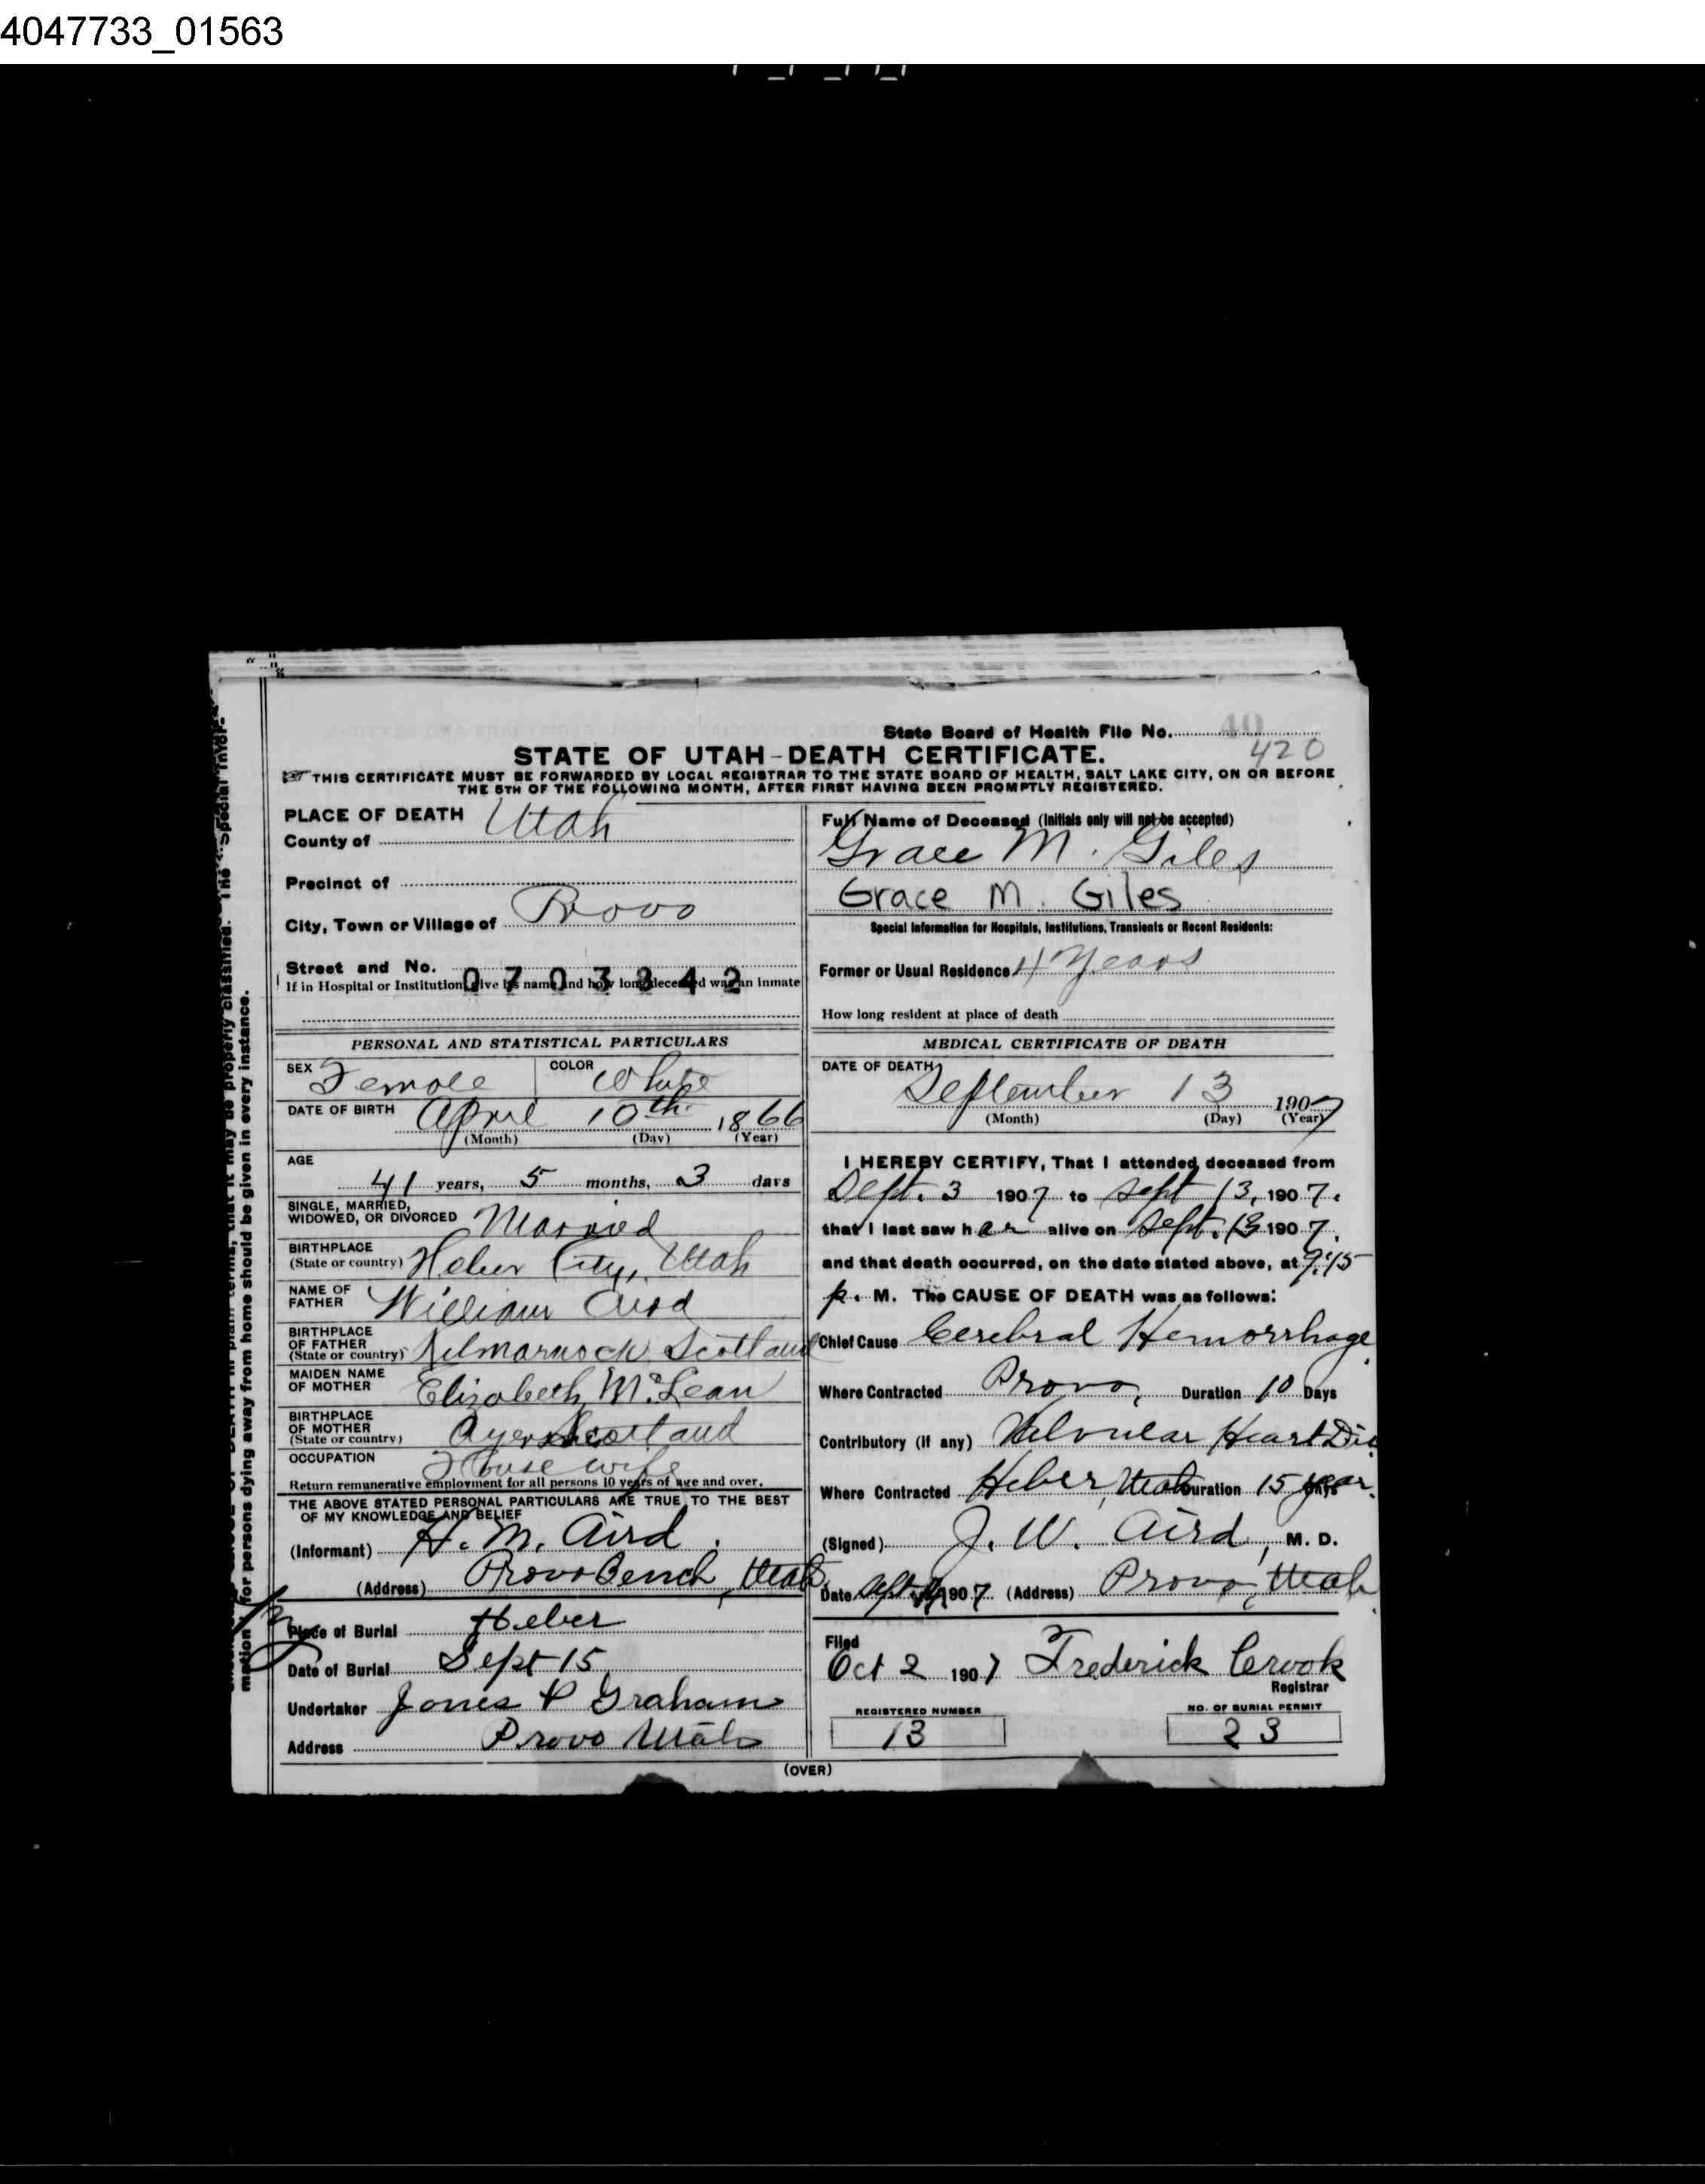 4047733_01563
State Board of Health File No. 40
420
STATE OF UTAH-DEATH CERTIFICATE.
THIS CERTIFICATE MUST BE FORWARDED BY LOCAL REGISTRAR TO THE STATE BOARD OF HEALTH, SALT LAKE CITY, ON OR BEFORE
THE 5TH OF THE FOLLOWING MONTH, AFTER FIRST HAVING BEEN PROMPTLY REGISTERED.
PLACE OF DEATH
County of Utah
Precinct of
City, Town or Village of Provo
Street and No.
0703342
If in Hospital or Institution, give its name and how long deceased was an inmate
PERSONAL AND STATISTICAL PARTICULARS
SEX Female COLOR White
DATE OF BIRTH April 10th 1866
(Month) (Day) (Year)
AGE
41 years, 5 months, 3 days
SINGLE, MARRIED,
WIDOWED, OR DIVORCED Married
BIRTHPLACE
(State or country) Heber City, Utah
NAME OF
FATHER William Aird
BIRTHPLACE
OF FATHER
(State or country) Kilmarnock Scotland
MAIDEN NAME
OF MOTHER Elizabeth McLean
BIRTHPLACE
OF MOTHER
(State or country) Ayer Scotland
OCCUPATION House wife
Return remunerative employment for all persons 10 years of age and over.
THE ABOVE STATED PERSONAL PARTICULARS ARE TRUE TO THE BEST
OF MY KNOWLEDGE AND BELIEF
(Informant) H. M. Aird.
(Address) Provo Bench, Utah
Place of Burial Heber
Date of Burial Sept 15
Undertaker Jones & Graham
Address Provo Utah
Full Name of Deceased (Initials only will not be accepted)
Grace M. Giles
Grace M. Giles
Special Information for Hospitals, Institutions, Transients or Recent Residents:
Former or Usual Residence 4 Years
How long resident at place of death
MEDICAL CERTIFICATE OF DEATH
DATE OF DEATH
September 13 1907
(Month) (Day) (Year)
I HEREBY CERTIFY, That I attended deceased from
Sept. 3 1907 to Sept 13, 1907.
that I last saw her alive on Sept. 13 1907.
and that death occurred, on the date stated above, at 9:15
p. M. The CAUSE OF DEATH was as follows:
Chief Cause Cerebral Hemorrhage
Where Contracted Provo, Duration 10 Days
Contributory (if any) Valvular Heart Dis
Where Contracted Heber, Utah Duration 15 year.
(Signed) J. W. Aird, M. D.
Date Sept 1907 (Address) Provo, Utah
Filed
Oct 2 1907 Frederick Crook
Registrar
REGISTERED NUMBER
13
NO. OF BURIAL PERMIT
23
(OVER)
mation for persons dying away from home should be given in every instance.